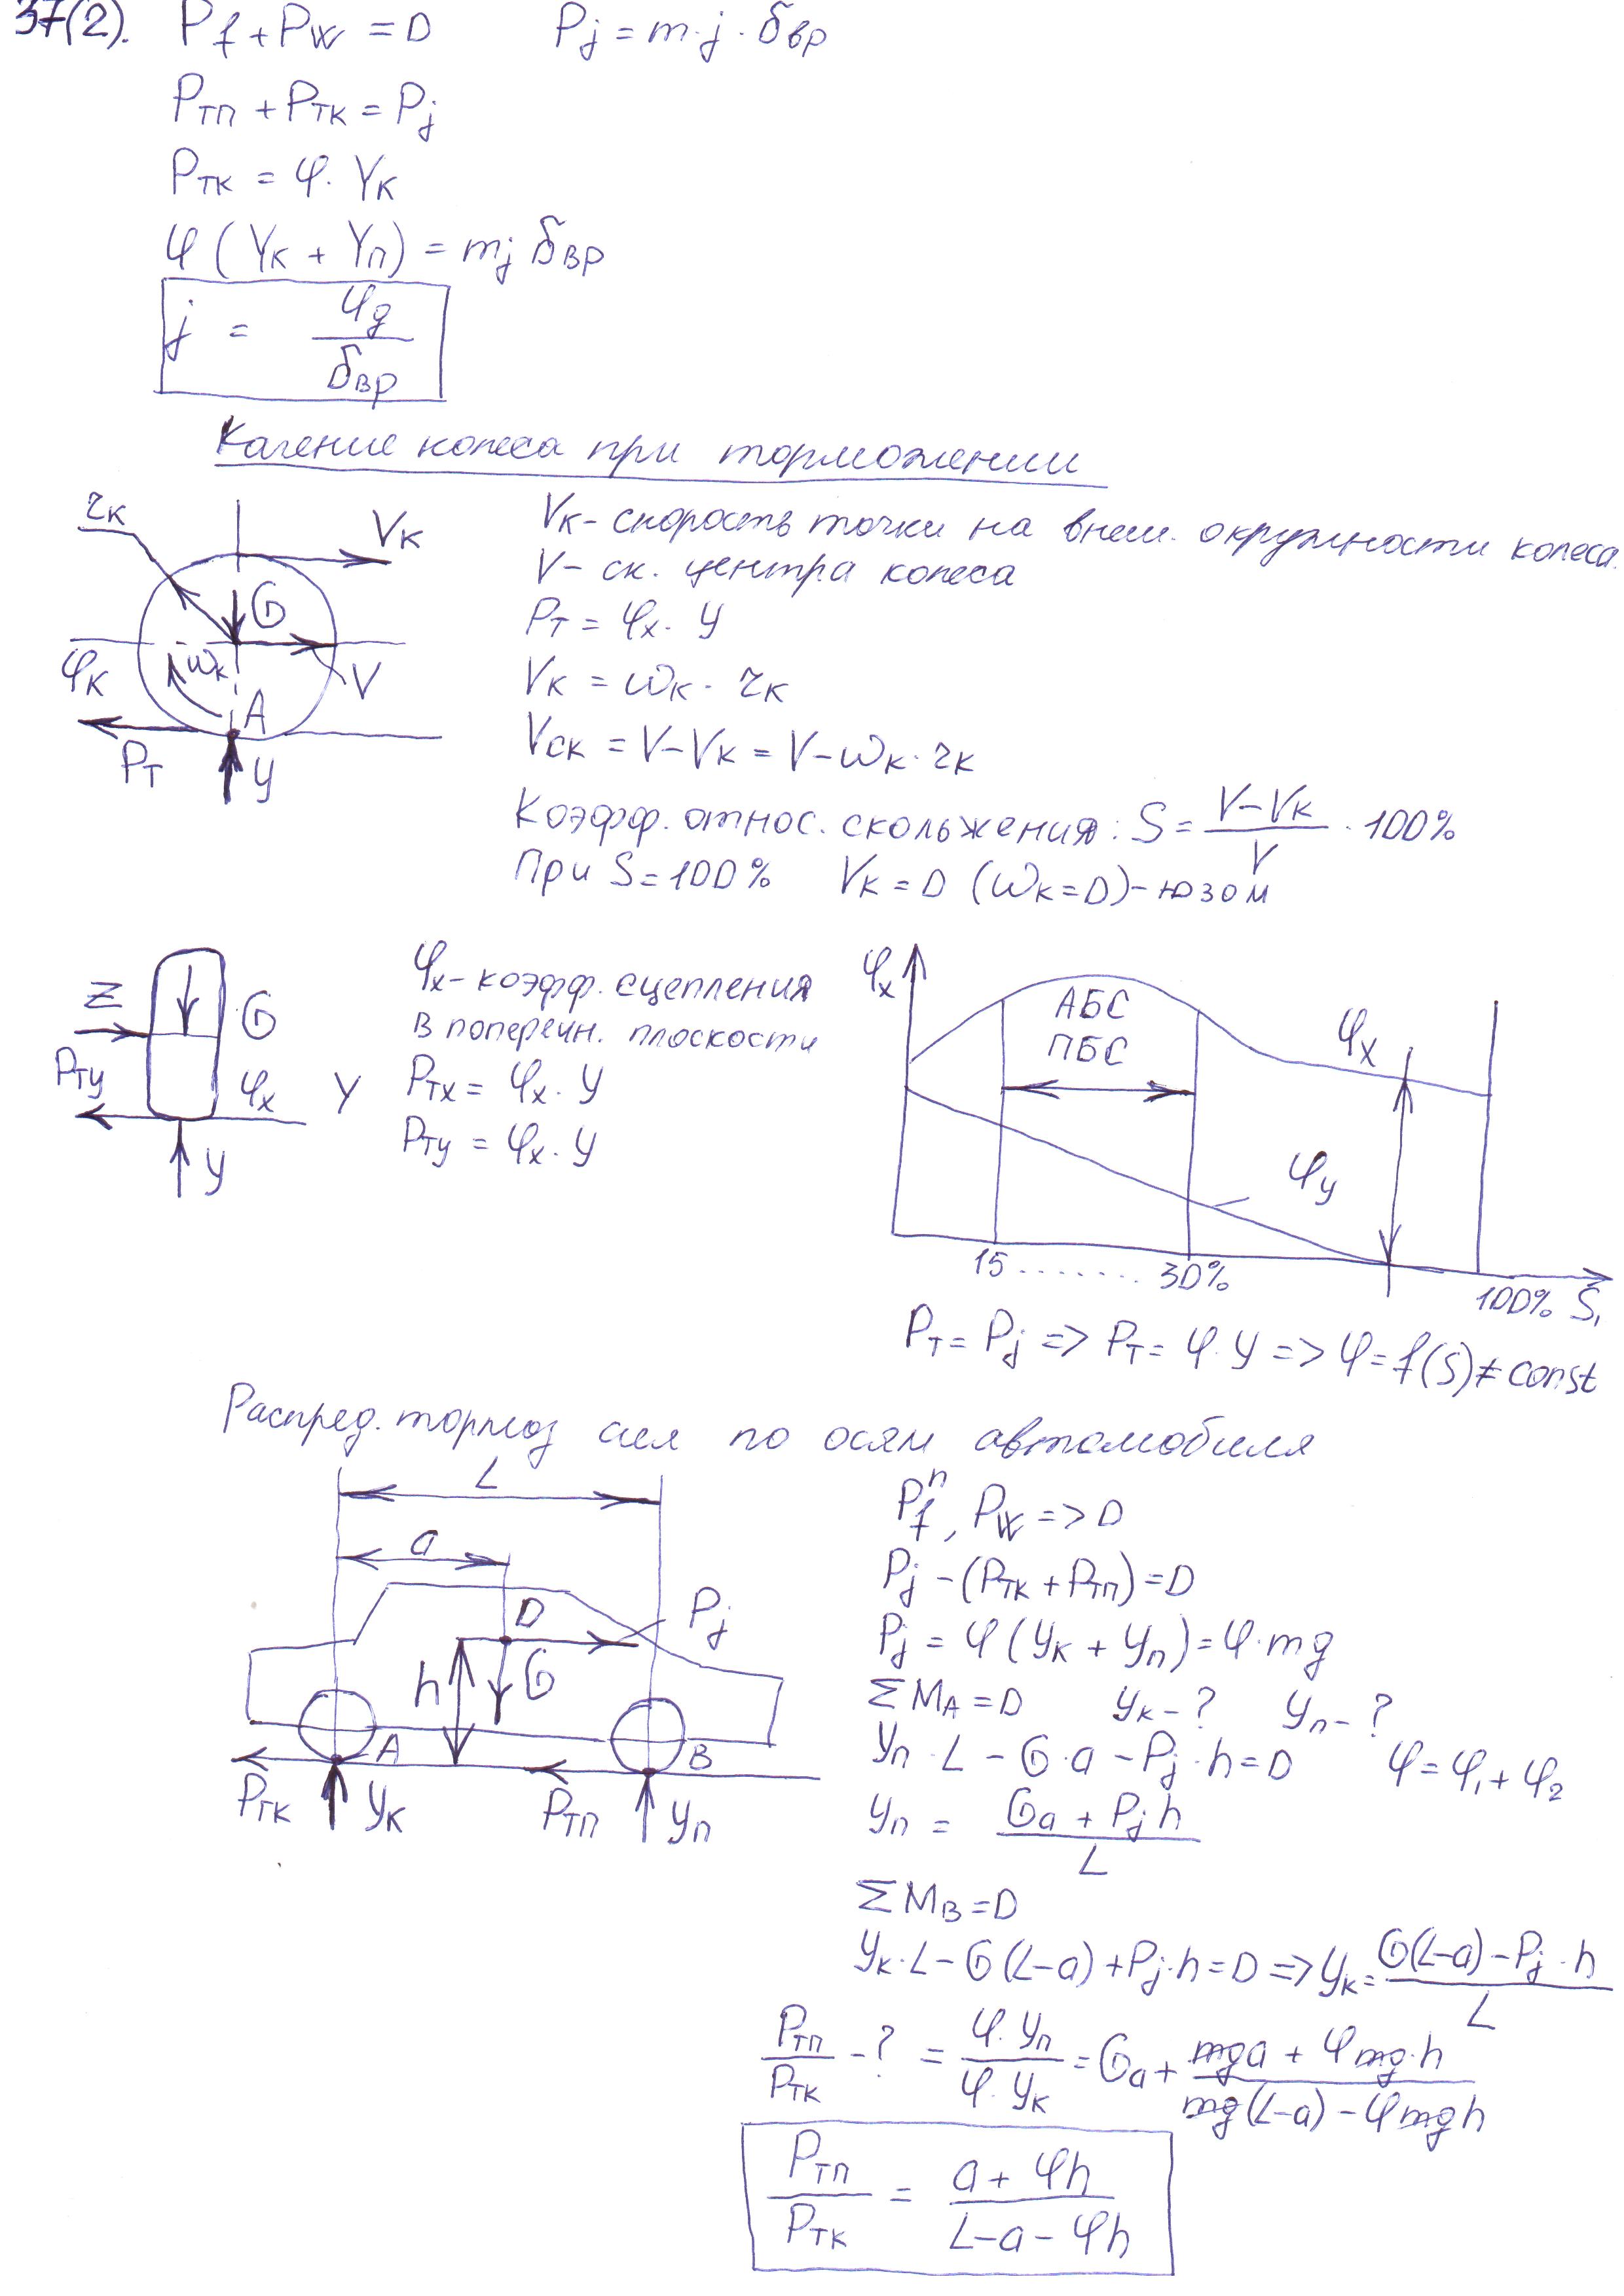 37(2). Pf + Pw = 0 Pj = m·j·δвр
Pтп + Pтк = Pj
Pтк = φ·Yк
φ(Yк + Yп) = mj δвр
j = φg/δвр
Качение колеса при торможении
rк
Vк
G
φк
ωк
V
A
Pт
y
Vк - скорость точки на внеш. окружности колеса.
V - ск. центра колеса
Pт = φx·y
Vк = ωк·rк
Vск = V-Vк = V-ωк·rк
Коэфф. относ. скольжения: S = (V-Vк)/V · 100%
При S=100% Vк=0 (ωк=0) - юзом
Z
G
Pту
φx
Y
y
φx - коэфф. сцепления
в поперечн. плоскости
Pтх = φx·y
Pту = φx·y
φx
АБС
ПБС
φx
φy
15 ........ 30%
100% S,
Pт = Pj => Pт = φ·y => φ = f(S) ≠ const
Распред. тормоз сил по осям автомобиля
L
a
D
Pj
h
G
A
B
Pтк
Yк
Pтп
Yп
Pfп, Pw => 0
Pj - (Pтк + Pтп) = 0
Pj = φ(yк + yп) = φ·mg
ΣMA = 0 yк - ? yп - ?
yп·L - G·a - Pj·h = 0 φ = φ1 + φ2
yп = (Ga + Pjh)/L
ΣMB = 0
yк·L - G(L-a) + Pj·h = 0 => yк = (G(L-a) - Pj·h)/L
Pтп/Pтк - ? = φ·yп/φ·yк = Ga + (mga + φmg·h)/(mg(L-a) - φmgh)
Pтп/Pтк = (a + φh)/(L-a-φh)